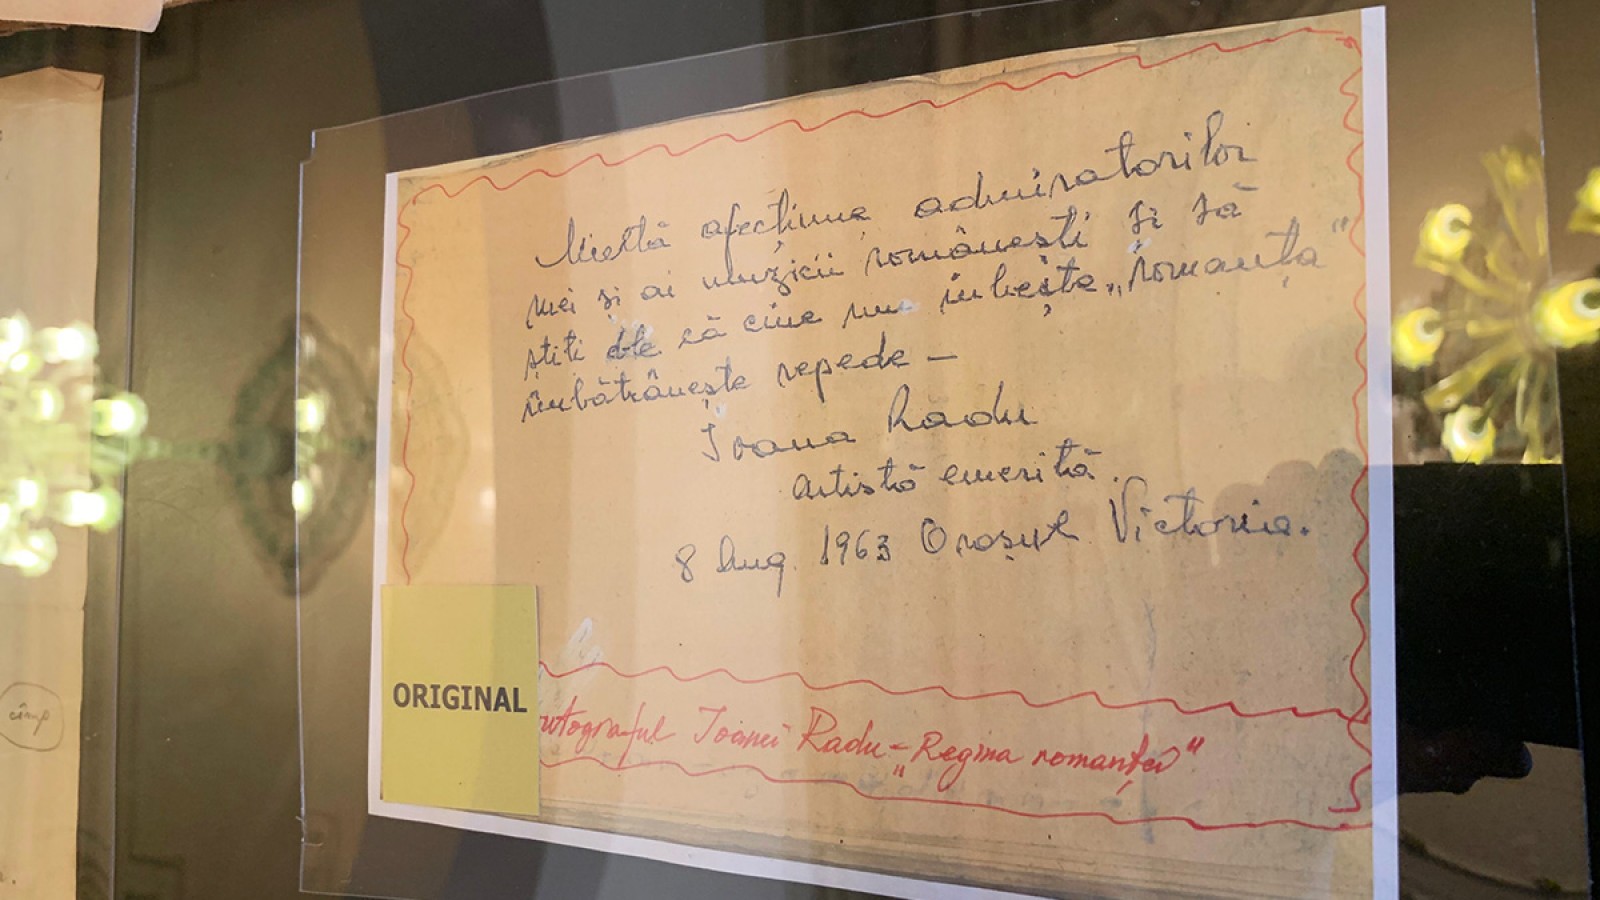 Multă afecțiune admiratorilor
mei și ai muzicii românești și să
știți de că cine nu iubește „romanța”
îmbătrânește repede –
Ioana Radu
Artistă emerită.
8 Aug. 1963 Orașul Victoria.
ORIGINAL
utograful Ioanei Radu – „Regina romanței”
cîmp